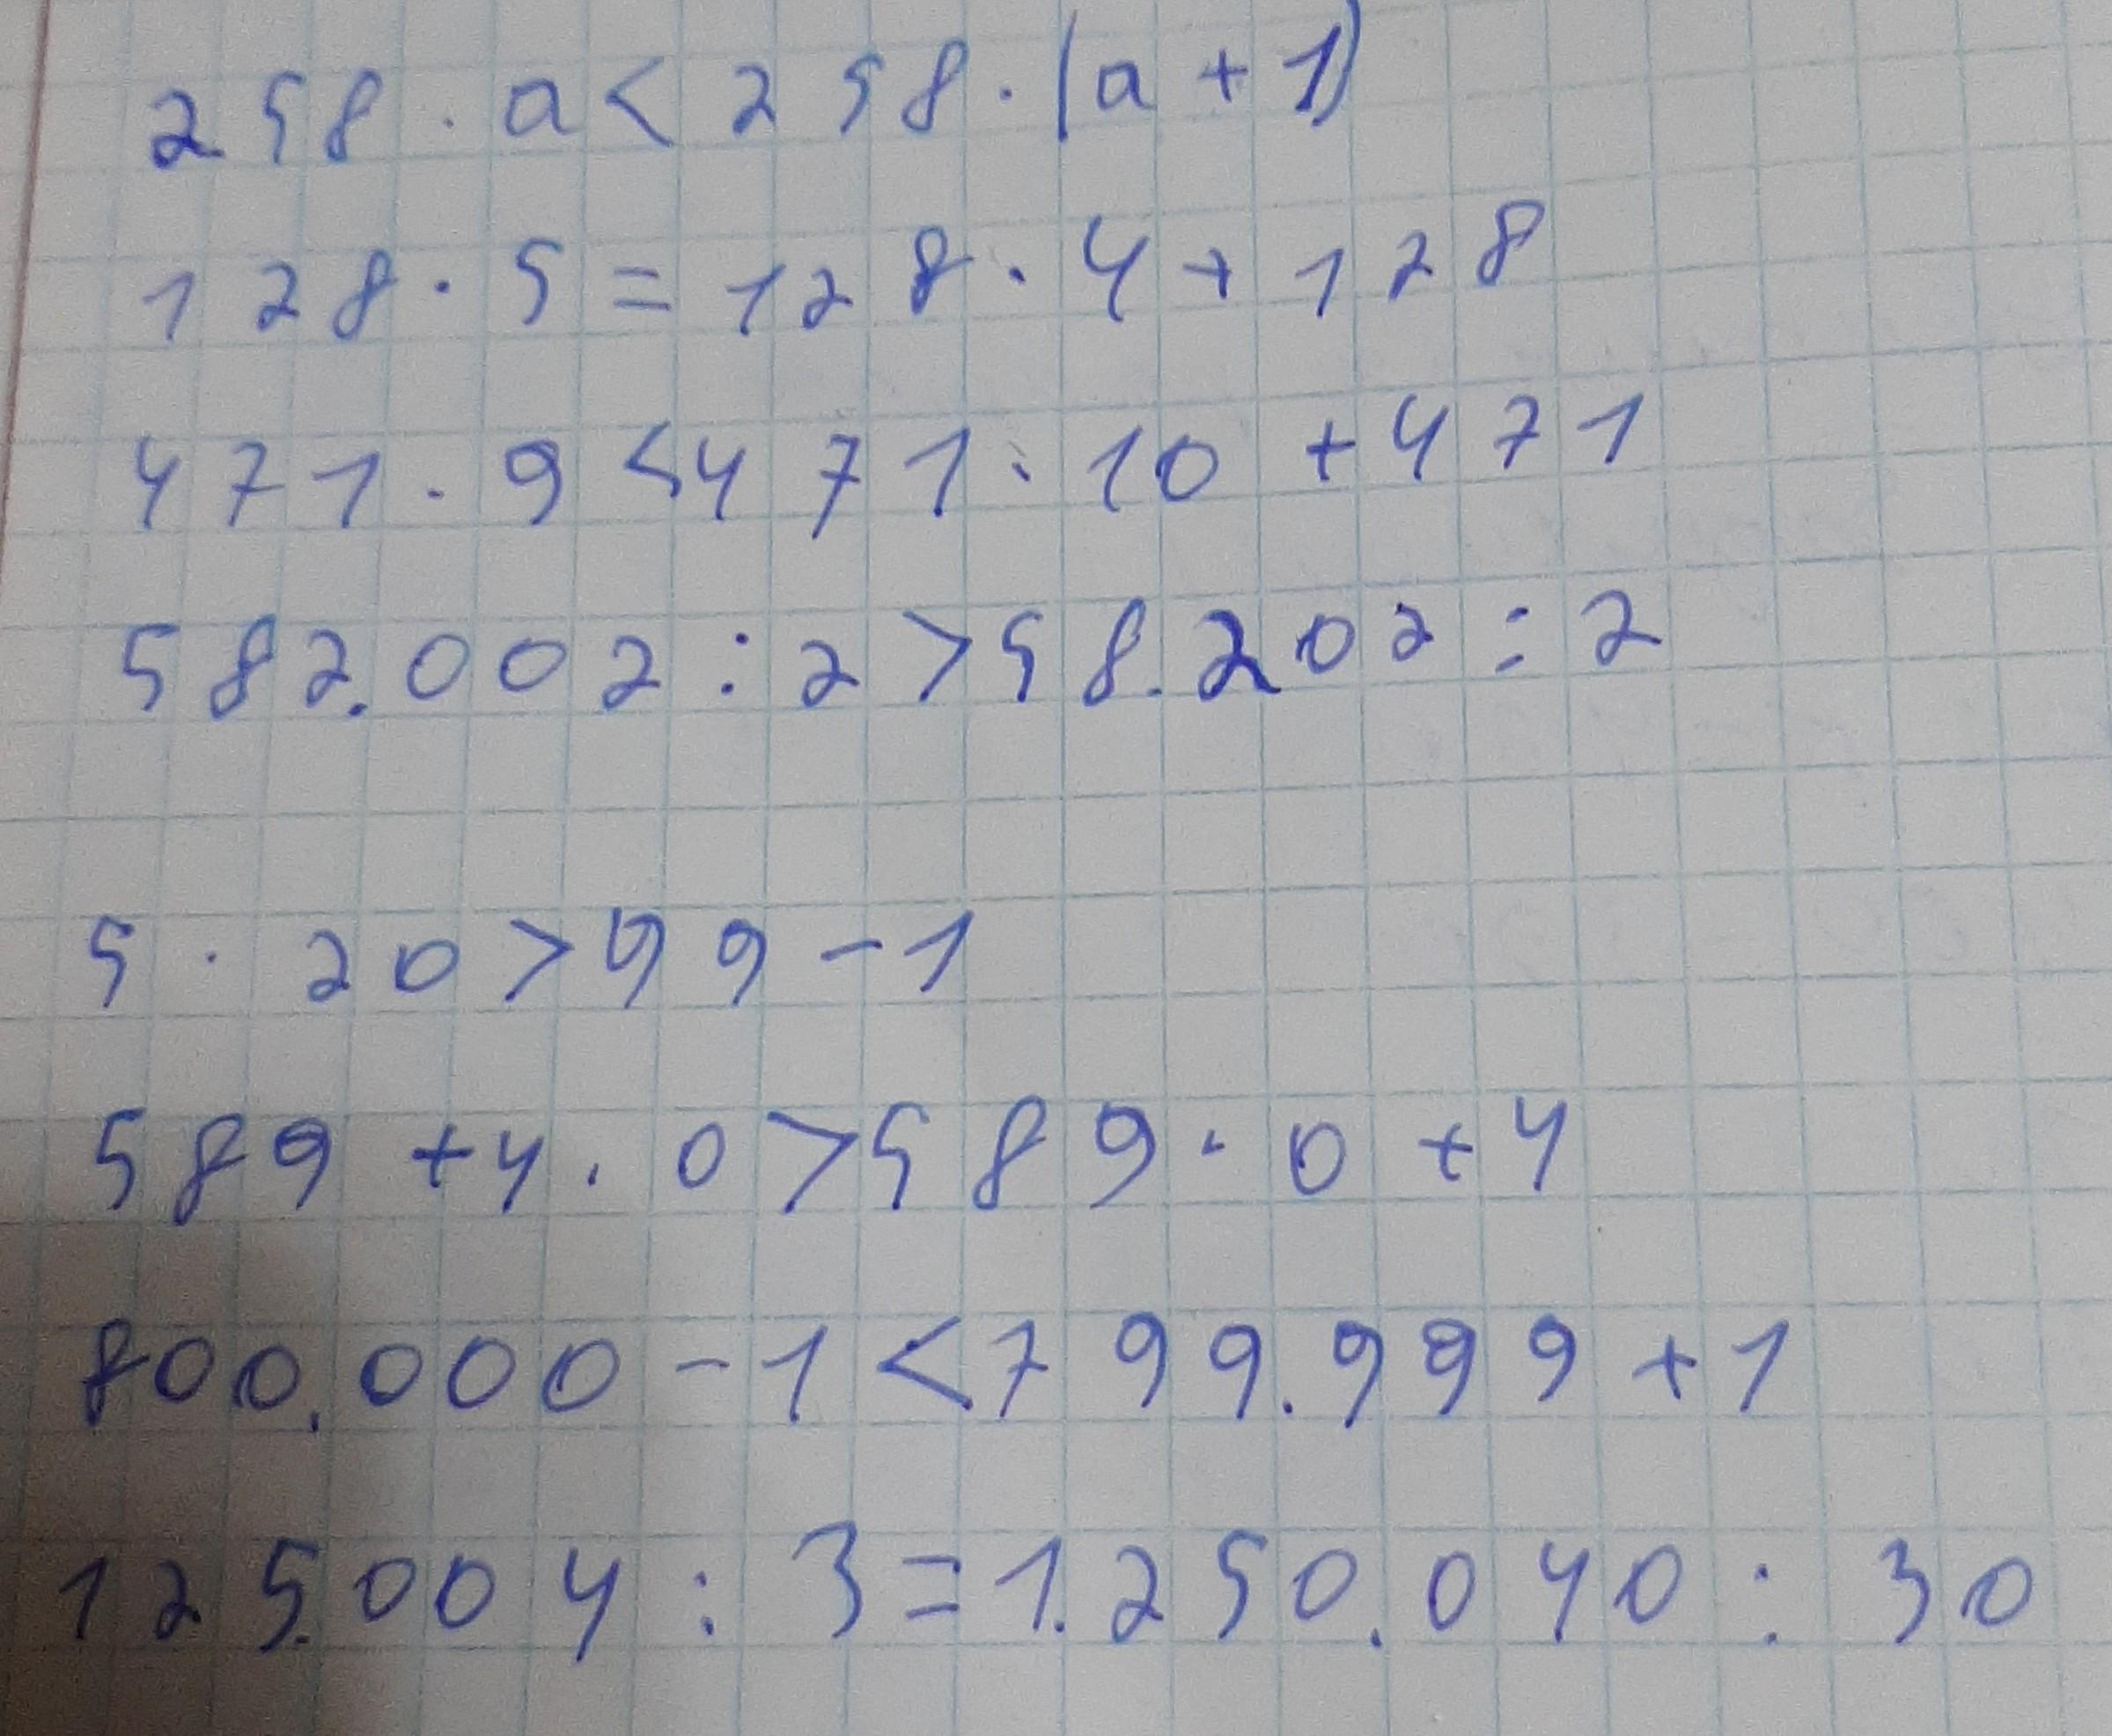 258 · a < 258 · (a + 1)
128 · 5 = 128 · 4 + 128
471 · 9 < 471 · 10 + 471
582.002 : 2 > 58.202 : 2
5 · 20 > 99 - 1
589 + 4 · 0 > 589 · 0 + 4
800.000 - 1 < 799.999 + 1
125.004 : 3 = 1.250.040 : 30